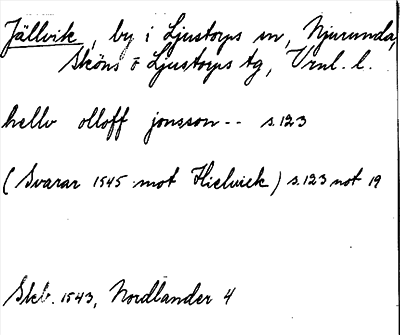 Jällvik, by i Ljustorps sn, Njurunda,
Sköns o Ljustorps tg, Vrnl. l.
hellv olloff jonsson -- s. 123
(Svarar 1545 mot Hielviek) s. 123 not 19
Skb. 1543, Nordlander 4